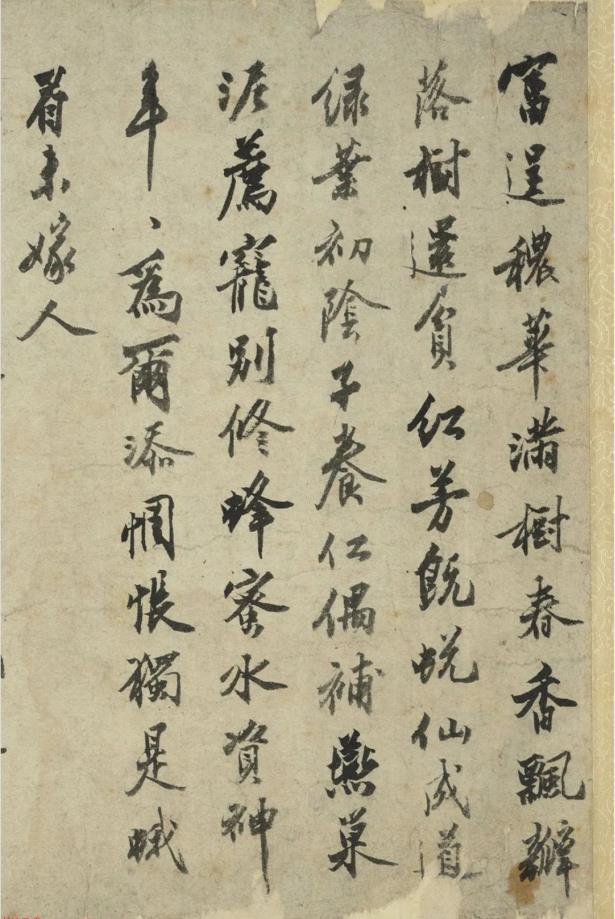 富逞穠華滿樹春香飄瓣
落樹還貧紅芳既蛻仙成道
綠葉初陰子養仁偶補燕巢
泥薦寵別修蜂蜜水資神
年、爲爾添惆悵獨是蛾
眉未嫁人